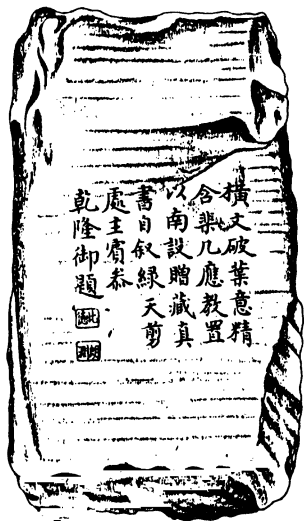 橫文破葉意精
含棐几應教置
以南設贈藏真
書自叙綠天剪
處主賓叅
乾隆御題